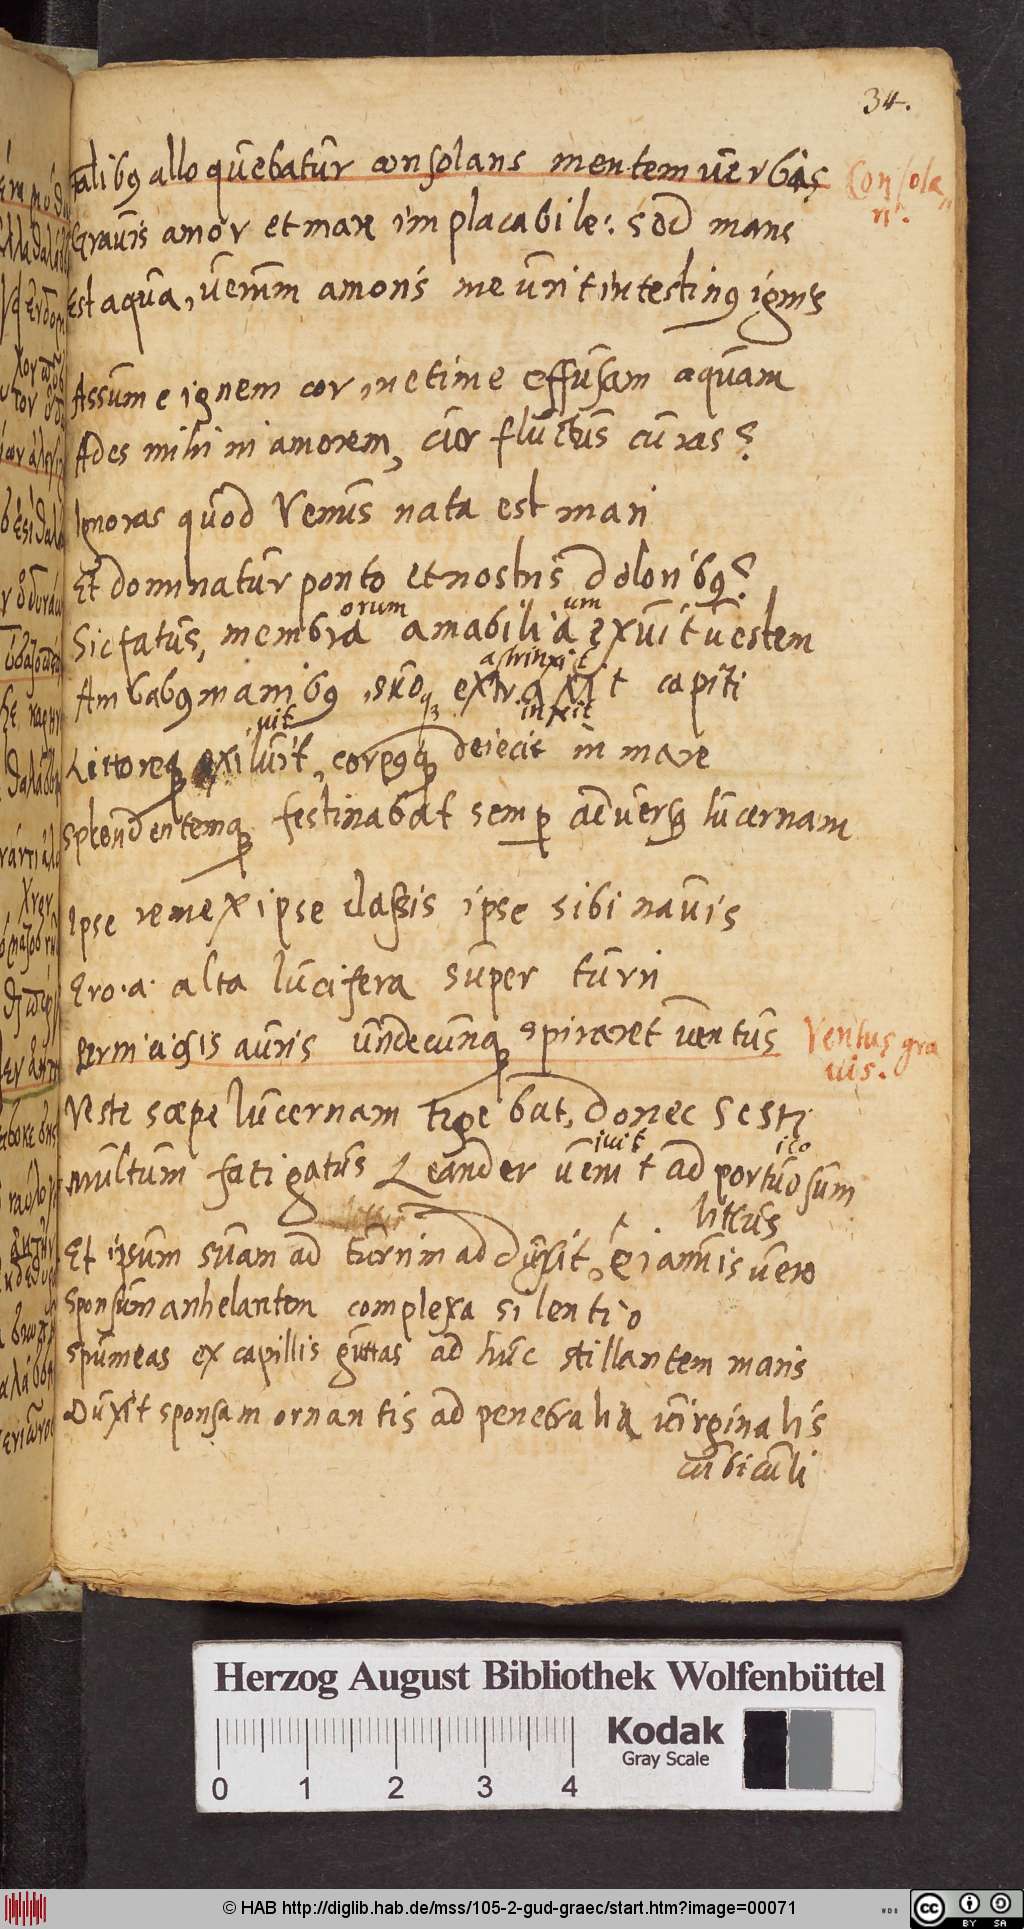 34.
Talibꝯ alloquebatur consolans mentem verbis
Consola
ri.
Gravis amor et mare implacabile: sed maris
Est aqua, verum amoris me urit intestinꝯ ignis
Assume ignem cor, ne time effusam aquam
Ades mihi in amorem, cur fluctus curas?
Ignoras quod Venus nata est mari
Et dominatur ponto et nostris doloribꝯ?
orum um
Sic fatus, membra amabilia exuit vestem
astrinxit
Ambabꝯ manibꝯ, suoq extraxit capiti
uit iniecit
Littoreq exiluit, corpꝯq deiecit in mare
Splendentemq festinabat semp adversꝯ lucernam
Ipse remex ipse classis ipse sibi navis
Ero .a. alta lucifera super turri
Perniciosis auris undecunq spiraret ventus
Ventus gra
vis.
Veste sæpe lucernam tegebat, donec Sesti
ivit ico
multum fatigatus Leander venit ad portuosum
littus
Et ipsum suam ad turrim adduxit, e ianuis vero
Sponsum anhelantem complexa silentio
Spumeas ex capillis guttas adhuc stillantem maris
Duxit sponsam ornantis ad penetralia virginalis
cubiculi
Herzog August Bibliothek Wolfenbüttel
0 1 2 3 4
Kodak
Gray Scale
© HAB http://diglib.hab.de/mss/105-2-gud-graec/start.htm?image=00071
cc BY SA